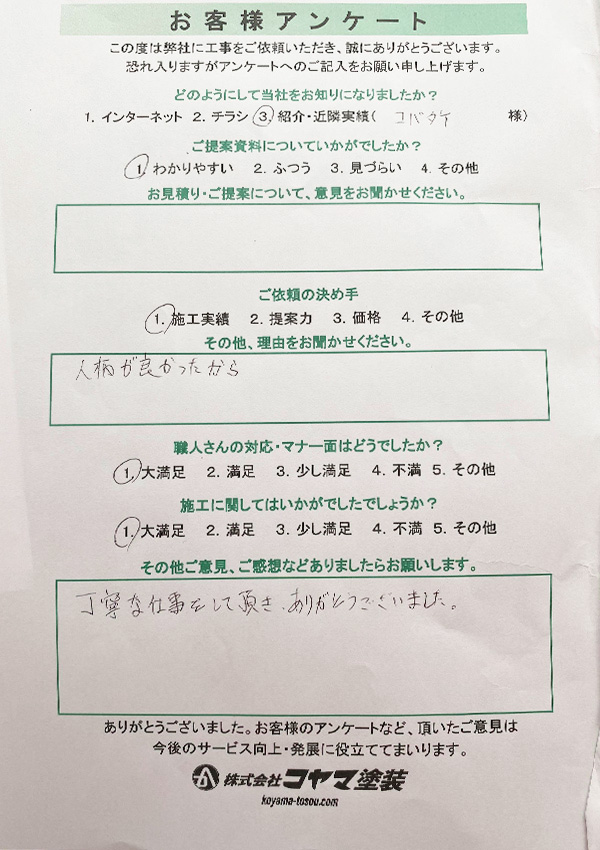 お客様アンケート
この度は弊社に工事をご依頼いただき、誠にありがとうございます。
恐れ入りますがアンケートへのご記入をお願い申し上げます。
どのようにして当社をお知りになりましたか?
1. インターネット 2. チラシ 3. 紹介・近隣実績( コバタケ 様)
ご提案資料についていかがでしたか?
1. わかりやすい 2. ふつう 3. 見づらい 4. その他
お見積り・ご提案について、意見をお聞かせください。
ご依頼の決め手
1. 施工実績 2. 提案力 3. 価格 4. その他
その他、理由をお聞かせください。
人柄が良かったから
職人さんの対応・マナー面はどうでしたか?
1. 大満足 2. 満足 3. 少し満足 4. 不満 5. その他
施工に関してはいかがでしたでしょうか?
1. 大満足 2. 満足 3. 少し満足 4. 不満 5. その他
その他ご意見、ご感想などありましたらお願いします。
丁寧な仕事をして頂き、ありがとうございました。
ありがとうございました。お客様のアンケートなど、頂いたご意見は
今後のサービス向上・発展に役立ててまいります。
株式会社コヤマ塗装
koyama-tosou.com